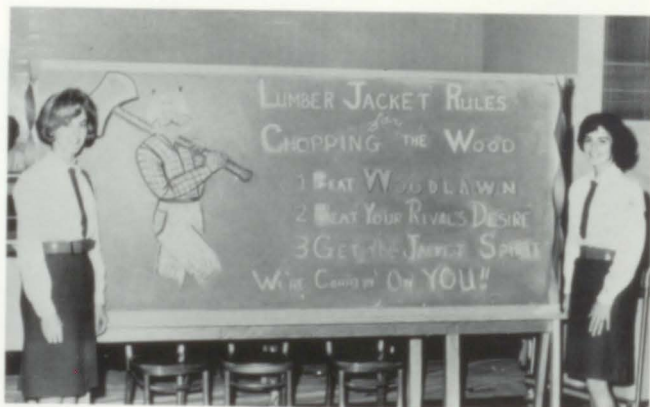 LUMBER JACKET RULES
for
CHOPPING THE WOOD
1 BEAT WOODLAWN
2 BEAT YOUR RIVAL'S DESIRE
3 GET the JACKET SPIRIT
We're Countin' On YOU!!